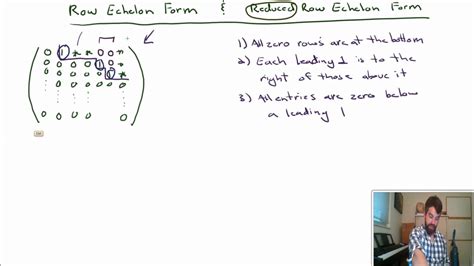 Row Echelon Form & Reduced Row Echelon Form
1) All zero rows are at the bottom
2) Each leading 1 is to the
right of those above it
3) All entries are zero below
a leading 1
0 1 * * 0 0 *
0 0 0 0 1 0 *
0 0 0 0 0 1 *
0 0 0 0 0 0 0